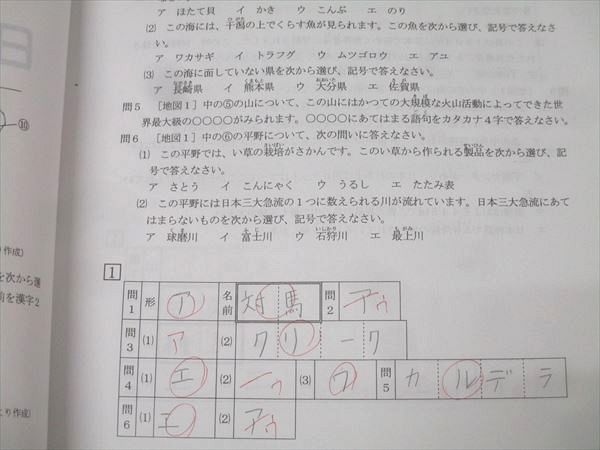 ア ほたて貝 イ かき ウ こんぶ エ のり
(2) この海には、干潟の上でくらす魚が見られます。この魚を次から選び、記号で答えなさい。
ア ワカサギ イ トラフグ ウ ムツゴロウ エ アユ
(3) この海に面していない県を次から選び、記号で答えなさい。
ア 長崎県 イ 熊本県 ウ 大分県 エ 佐賀県
問5 [地図1]中の⑤の山について、この山にはかつての大規模な火山活動によってできた世
界最大級の〇〇〇〇がみられます。〇〇〇〇にあてはまる語句をカタカナ4字で答えなさい。
問6 [地図1]⑥の平野について、次の問いに答えなさい。
(1) この平野では、い草の栽培がさかんです。このい草から作られる製品を次から選び、記
号で答えなさい。
ア さとう イ こんにゃく ウ うるし エ たたみ表
(2) この平野には日本三大急流の1つに数えられる川が流れています。日本三大急流にあて
はまらないものを次から選び、記号で答えなさい。
ア 球磨川 イ 富士川 ウ 石狩川 エ 最上川
⑩
作成)
を次から選
前を漢字2
より作成)
1
問1 形 ア 名前 対馬 問2 ウ
問3 (1) ア (2) クリーク
問4 (1) エ (2) ウ (3) ウ 問5 カルデラ
問6 (1) エ (2) ウ